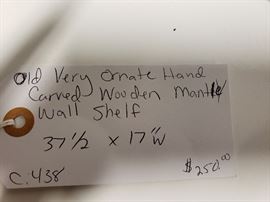 Old Very Ornate Hand
Carved Wooden Mantle
Wall Shelf
37 1/2 x 17" W
C.438
$250.00